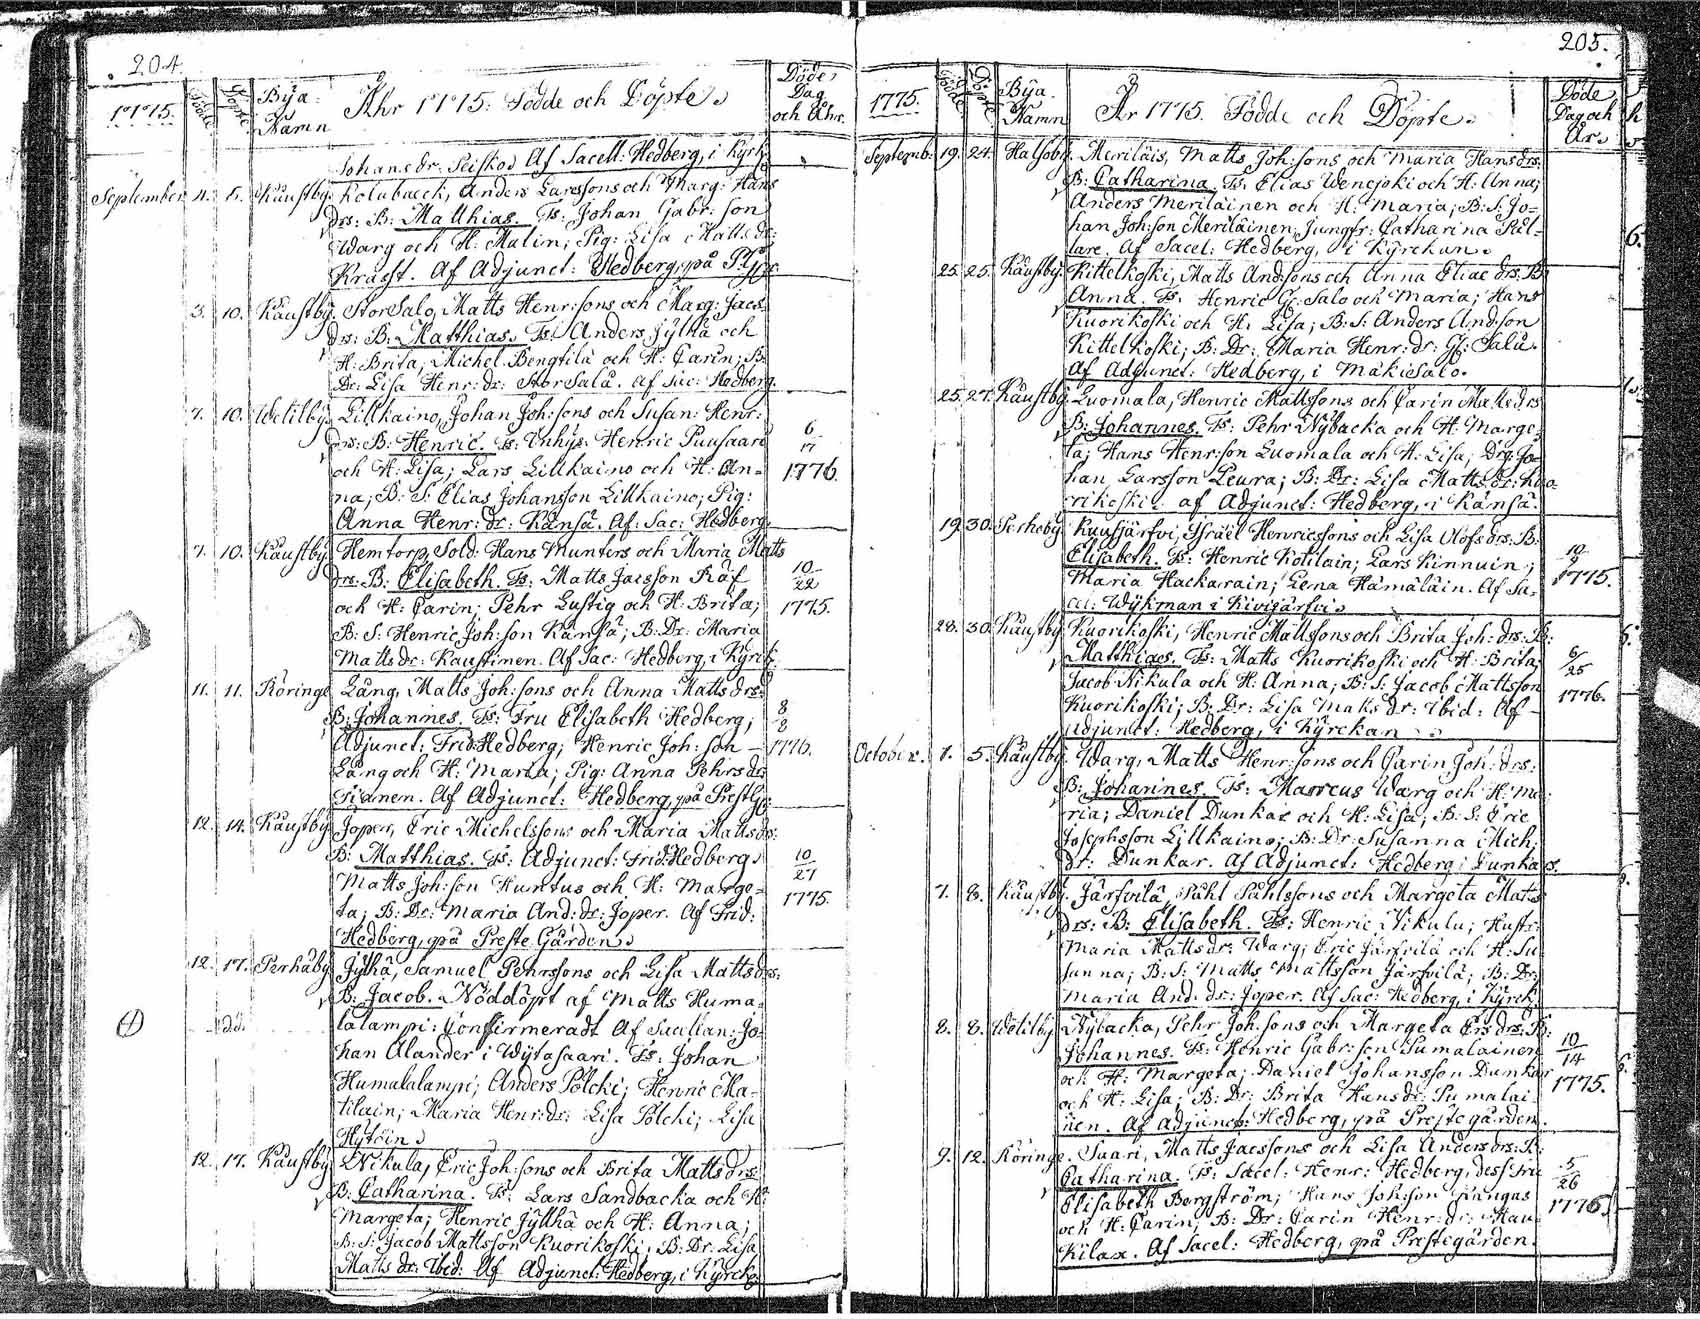 204.
1775.
Födde
Döpte
Bÿa
Namn
Åhr 1775. Födde och Döpte.
Döde,
Dag
och Åhr.
Johansdr: Seiskos Af Sacell: Hedberg, i Kÿrk:
September 4. 5. Kaustbÿ Kolubacck, Anders Larssons och Marg: Hans
drs: B: Matthias. Fs: Johan Gabr: son
Warg och H: Malin; Pig: Lisa Matts dr:
Kraast. Af Adjunct: Hedberg, på P:Gd:
3. 10. Kaustbÿ. StorSalo, Matts Henr: sons och Marg: Jacs
drs: B: Matthias. Fs: Anders Jÿlhä och
H: Brita; Michel Bengtilä och H: Carin; B:
Dr: Lisa Henr: dr: StorSalå. Af Sac: Hedberg.
7. 10. Wetilbÿ. Lillkaino, Johan Joh: sons och Susan: Henr:
drs: B: Henric. Fs: Unhÿs: Henric Puusaari
och H: Lisa; Lars Lillkaino och H: An-
na; B: S: Elias Johansson Lillkaino; Pig:
Anna Henr: dr: Känsä. Af: Sac: Hedberg.
6
17
1776.
7. 10. Kaustbÿ. Hemtorp, Sold: Hans Munters och Maria Matts
drs: B: Elisabeth. Fs: Matts Jacsson Räf
och H: Carin; Pehr Lustig och H: Brita;
B: S: Henric Joh: son Känsä; B: Dr: Maria
Matts dr: Kaustinen. Af Sac: Hedberg, i Kÿrk:
10
22
1775.
11. 11. Röringe Lång, Matts Joh: sons och Anna Matts drs:
B: Johannes. Fs: Fru Elisabeth Hedberg;
Adjunct: Frid: Hedberg; Henric Joh: son
Lång och H: Maria; Pig: Anna Pehrs dr:
Af Adjunct: Hedberg, på PrestG:
8
8
1776.
12. 14. Kaustbÿ Joper, Eric Michelssons och Maria Matts drs:
B: Matthias. Fs: Adjunct: Frid: Hedberg;
Matts Joh: son Huntus och H: Marge-
ta; B: Dr: Maria And: dr: Joper. Af Frid:
Hedberg, på Preste Gården.
10
27
1775.
12. 17. Perhobÿ Jÿlhä, Samuel Pehrssons och Lisa Matts drs:
B: Jacob. Nöddöpt af Matts Huma-
lalampi: Confirmeradt Af
han Alander i Wÿtasaari. Fs: Johan
Humalalampi; Anders Pölchi; Henric Ma-
tilain; Maria Henr: dr: Lisa Pölchi; Lisa
Hÿtöin.
12. 17. Kaustbÿ Nikula, Eric Joh: sons och Brita Matts drs:
B: Catharina. Fs: Lars Sandbacka och H:
Margeta; Henric Jÿlhä och H: Anna;
B: S: Jacob Mattsson Kuorikoski; B: Dr: Lisa
Matts dr: Ibid: Af Adjunct: Hedberg, i Kÿrck:
205.
1775.
Födde
Döpte
Bÿa
Namn
År 1775. Födde och Döpte.
Döde
Dag och
År.
Septemb: 19. 24. Halsobÿ. Meriläis, Matts Joh: sons och Maria Hans drs:
B: Catharina. Fs: Elias Wencjoki och H: Anna;
Anders Meriläinen och H: Maria; B: S: Jo-
han Joh: son Meriläinen; Jungfr: Catharina Pil-
lare. Af Sacel: Hedberg, i Kÿrckan.
25. 25. Kaustbÿ. Kittelkoski, Matts And: sons och Anna Elias drs: B:
Anna. Fs: Henric G: Salo och Maria; Hans
Kuorikoski och H: Lisa; B: S: Anders And: son
Kittelkoski; B: Dr: Maria Henr: dr: G: Salå.
Af Adjunct: Hedberg, i Mäkisalo.
25. 27. Kaustbÿ. Luomala, Henric Mattssons och Carin Matts drs
B: Johannes. Fs: Pehr Nÿbacka och H: Marge-
ta; Hans Henr: son Luomala och H: Lisa; Drg: Jo-
han Larsson Leura; B: Dr: Lisa Matts dr: Kuo-
rikoski. af Adjunct: Hedberg, i Känsä.
19. 30. Perhobÿ Kuusjärfvi, Jsräel Henricssons och Lisa Olofs drs: B:
Elisabeth. Fs: Henric Kotilain; Lars Kinnuin;
Maria Hackarain; Lena Hämäläin. Af Sa-
cel: Wÿkman i Kivijärfvi.
10
9
1775.
28. 30. Kaustbÿ Kuorikoski, Henric Mattssons och Brita Joh: drs: B:
Matthias. Fs: Matts Kuorikoski och H: Brita;
Jacob Nikula och H: Anna; B: S: Jacob Mattsson
Kuorikoski; B: Dr: Lisa Matts dr: Ibid: Af
Adjunct: Hedberg, i Kÿrckan.
6
25
1776.
October. 1. 5. Kaustbÿ. Warg, Matts Henr: sons och Carin Joh: drs:
B: Johannes. Fs: Marcus Warg och H: Ma-
ria; Daniel Dunkar och H: Lisa; B: S: Eric
Josephsson Lillkaino; B: Dr: Susanna Mich:
dr: Dunkar. Af Adjunct: Hedberg i Dunkars.
7. 8. Kaustbÿ. Järfvilä, Påhl Påhlssons och Margeta Matts
drs: B: Elisabeth. Fs: Henric Nikula; Hustr:
Maria Matts dr: Warg; Eric Järfvilä och H: Su-
sanna; B: S: Matts Mattsson Järfvilä; B: Dr:
Maria And: dr: Joper. Af Sac: Hedberg, i Kÿrck:
8. 8. Wetilbÿ Nÿbacka, Pehr Joh: sons och Margeta Ers drs: B:
Johannes. Fs: Henric Gabr: son Pumalainen
och H: Margeta; Daniel Johansson Dunkar
och H: Lisa; B: Dr: Brita Hans dr: Pumalai-
nen. Af Adjunct: Hedberg, på Prestegården.
10
14
1775.
9. 12. Röringe. Saari, Matts Jacssons och Lisa Anders drs: B:
Catharina. Fs: Sacel: Henr: Hedberg, dess Fru
Elisabeth Bergström; Hans Joh: son Gångus
och H: Carin; B: Dr: Carin Henr: dr: Hau-
kilax. Af Sacel: Hedberg, på Prestegården.
5
26
1776.